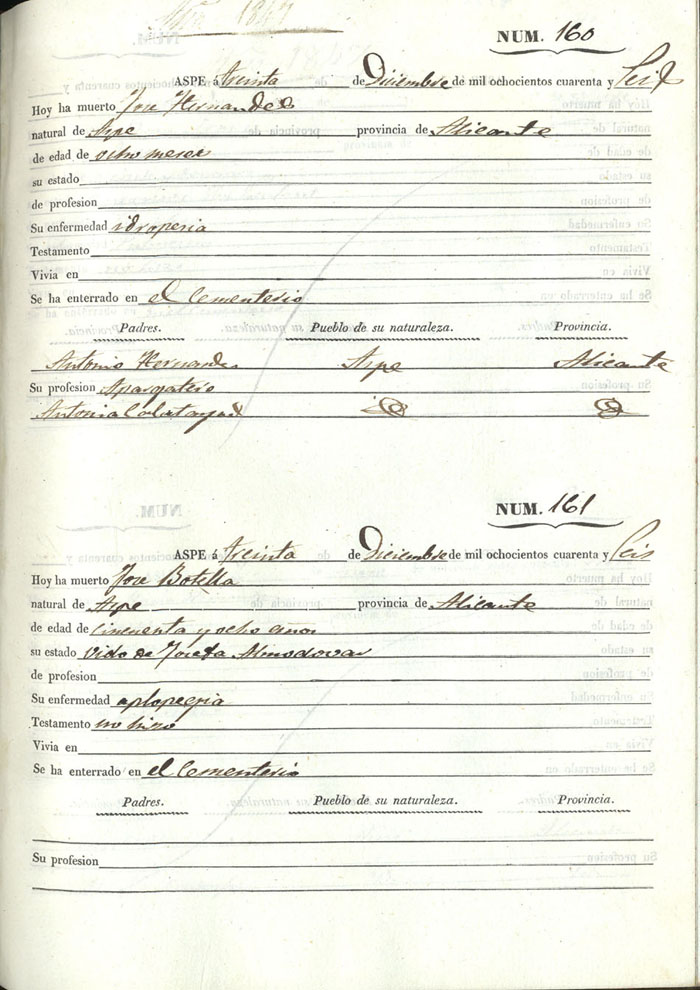 Año 1847
NUM. 160
ASPE á treinta de Diciembre de mil ochocientos cuarenta y Seis
Hoy ha muerto Jose Hernandez
natural de Aspe provincia de Alicante
de edad de ocho meses
su estado
de profesion
Su enfermedad idropecia
Testamento
Vivia en
Se ha enterrado en el Cementerio
Padres. Pueblo de su naturaleza. Provincia.
Antonio Hernandes Aspe Alicante
Su profesion Apargatero
Antonia Calatayud
NUM. 161
ASPE á treinta de Diciembre de mil ochocientos cuarenta y Seis
Hoy ha muerto Jose Botella
natural de Aspe provincia de Alicante
de edad de cincuenta y ocho años
su estado vido de Josefa Almodovar
de profesion
Su enfermedad aplopegia
Testamento no hizo
Vivia en
Se ha enterrado en el Cementerio
Padres. Pueblo de su naturaleza. Provincia.
Su profesion